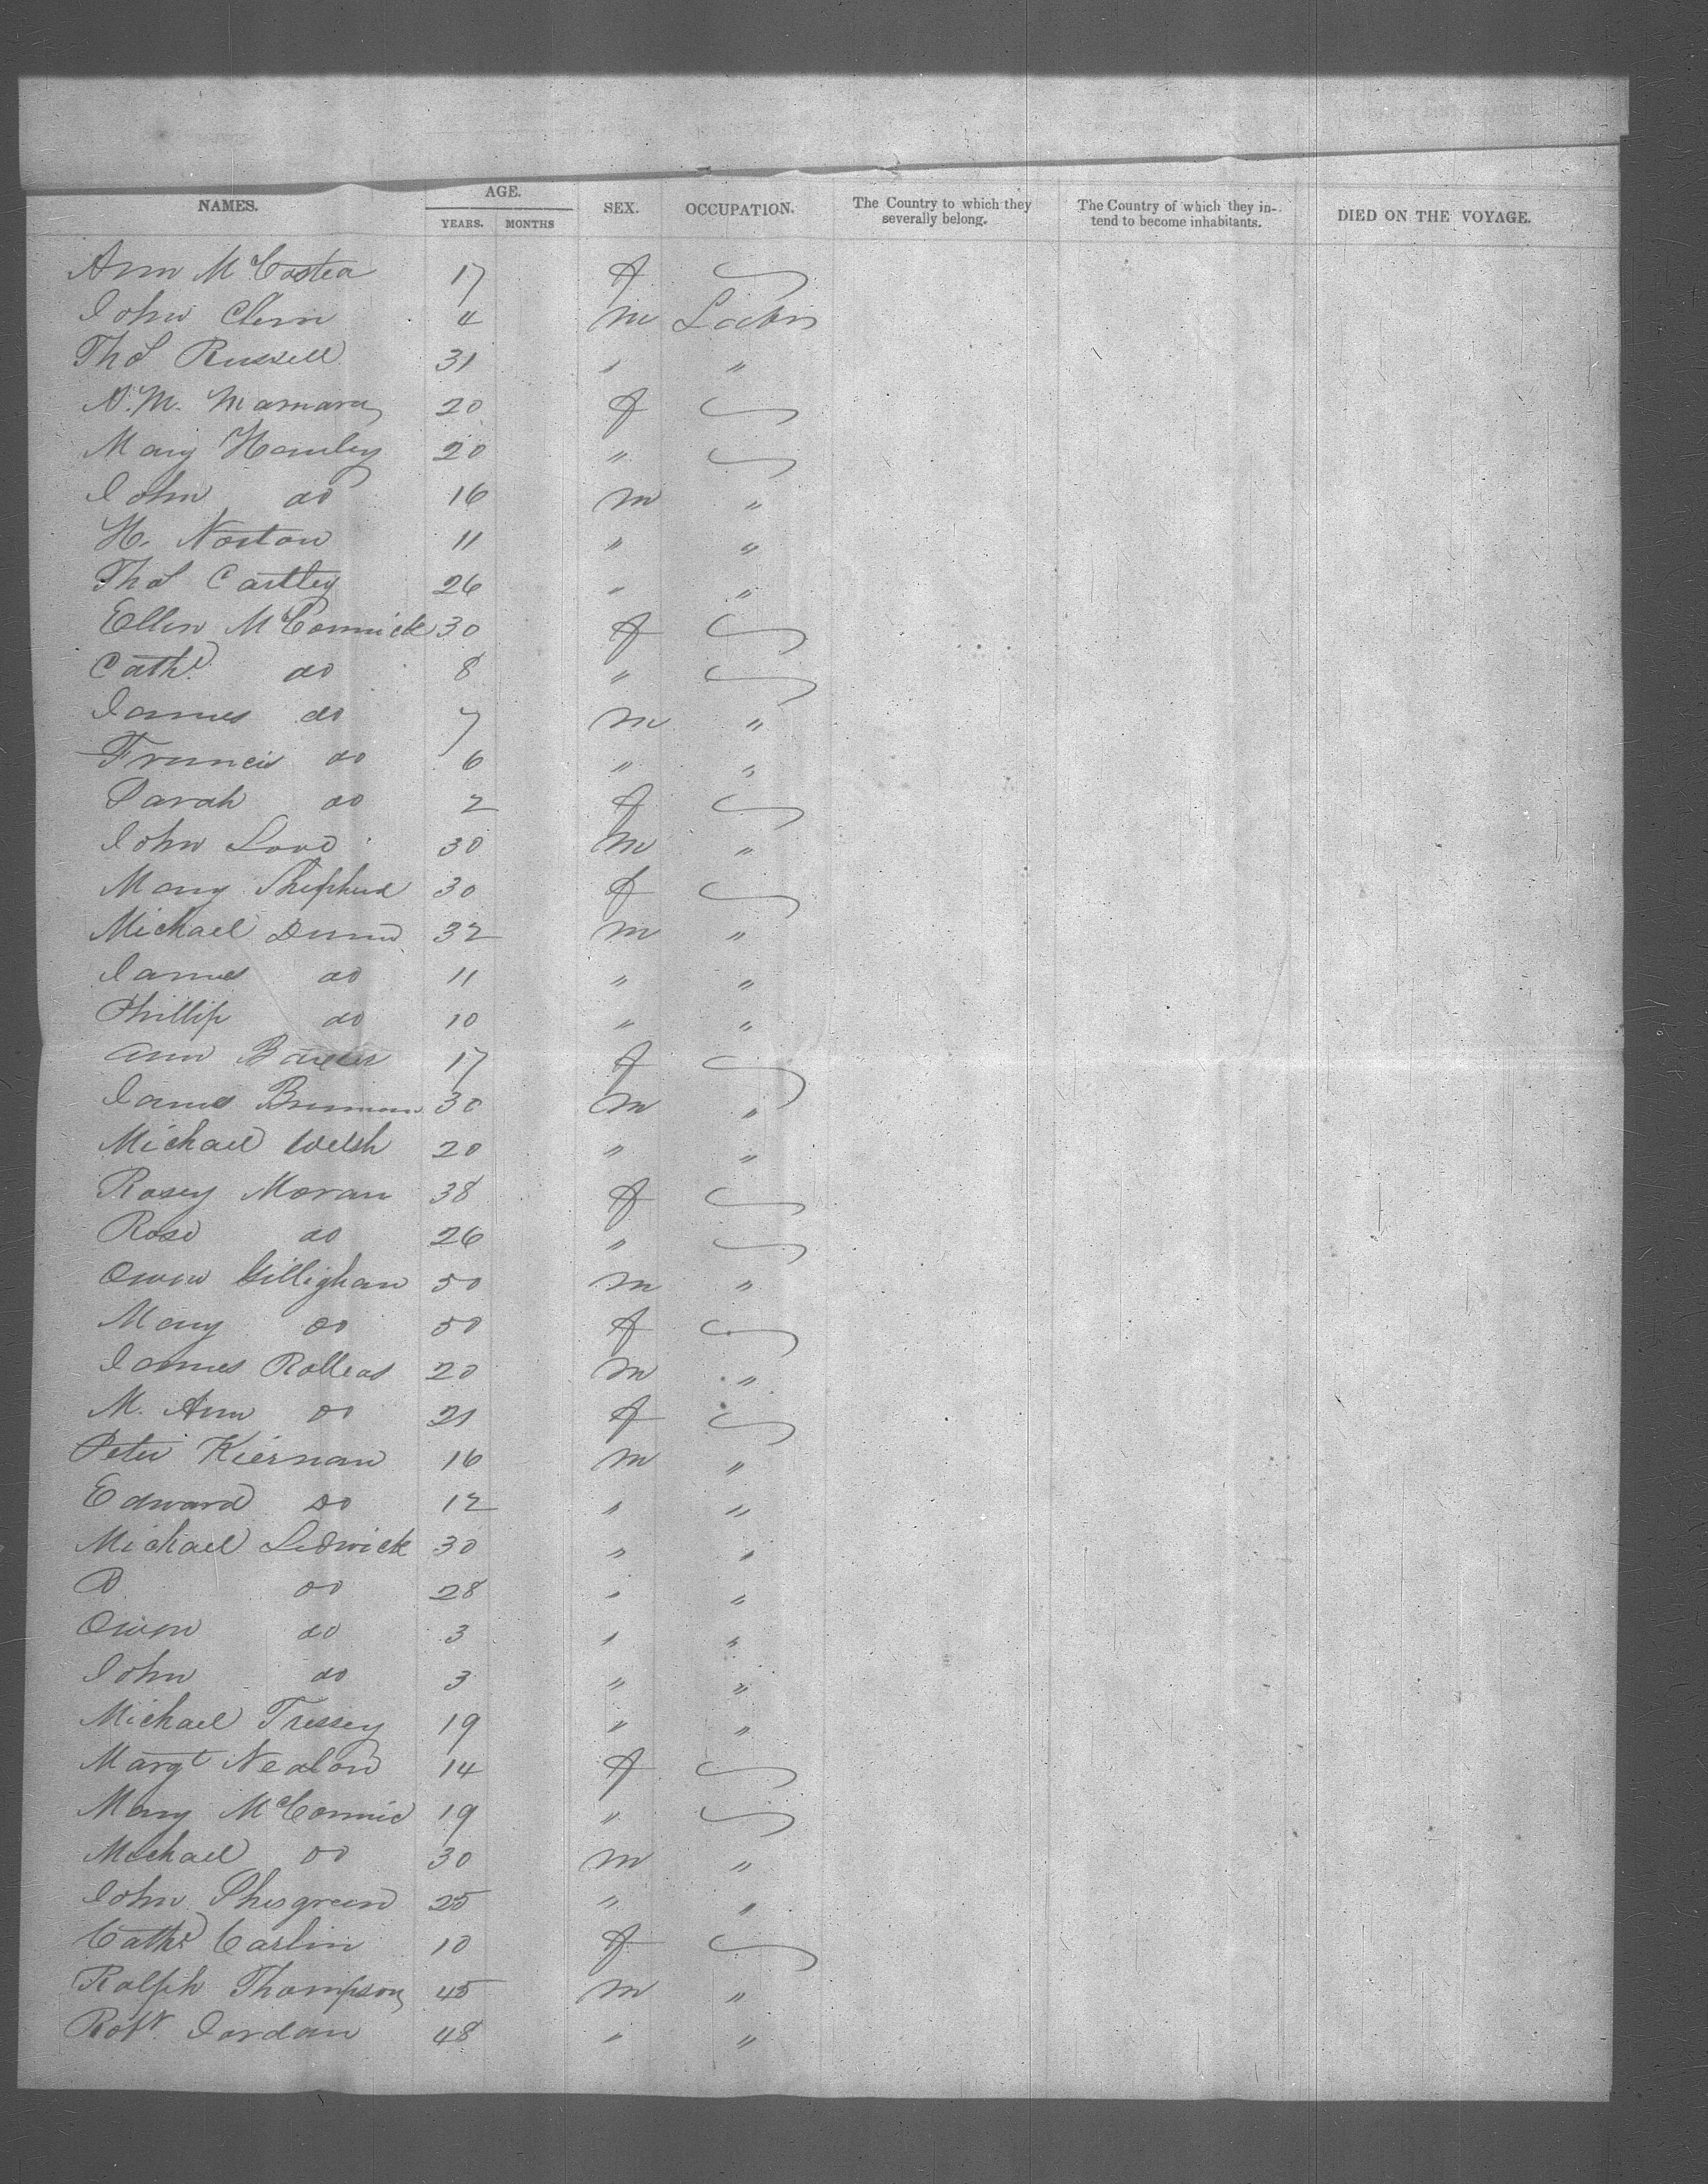 NAMES. AGE. SEX. OCCUPATION. The Country to which they severally belong. The Country of which they in-tend to become inhabitants. DIED ON THE VOYAGE.
YEARS. MONTHS
Ann McCostea 17 f
John Clern 4 m Labr
Thos Russell 31 " "
N. M. Mamara 20 f
Mary Hanley 20 "
John do 16 m "
H. Norton 11 " "
Thos Cartley 26 " "
Ellen McCormick 30 f
Cathe do 8 "
James do 7 m "
Francis do 6 " "
Sarah do 2 f
John Love 30 m "
Mary Shepherd 30 f
Michael Dunn 32 m "
James do 11 " "
Phillip do 10 " "
Ann 17 f
James 30 m "
Michael Welsh 20 " "
Rosey Moran 38 f
Rose do 26 "
Owen Gillighan 50 m "
Mary do 50 f
James Rolleas 20 m "
M. Ann do 21 f
Peter Kiernan 16 m "
Edward do 12 " "
Michael Ledwick 30 " "
P do 28 " "
Owen do 3 " "
John do 3 " "
Michael Tressey 19 " "
Margt Nealon 14 f
Mary McCormic 19 "
Michael do 30 m "
John 25 " "
Cathe Carlin 10 f
Ralph Thompson 45 m "
Robt Jordan 48 " "